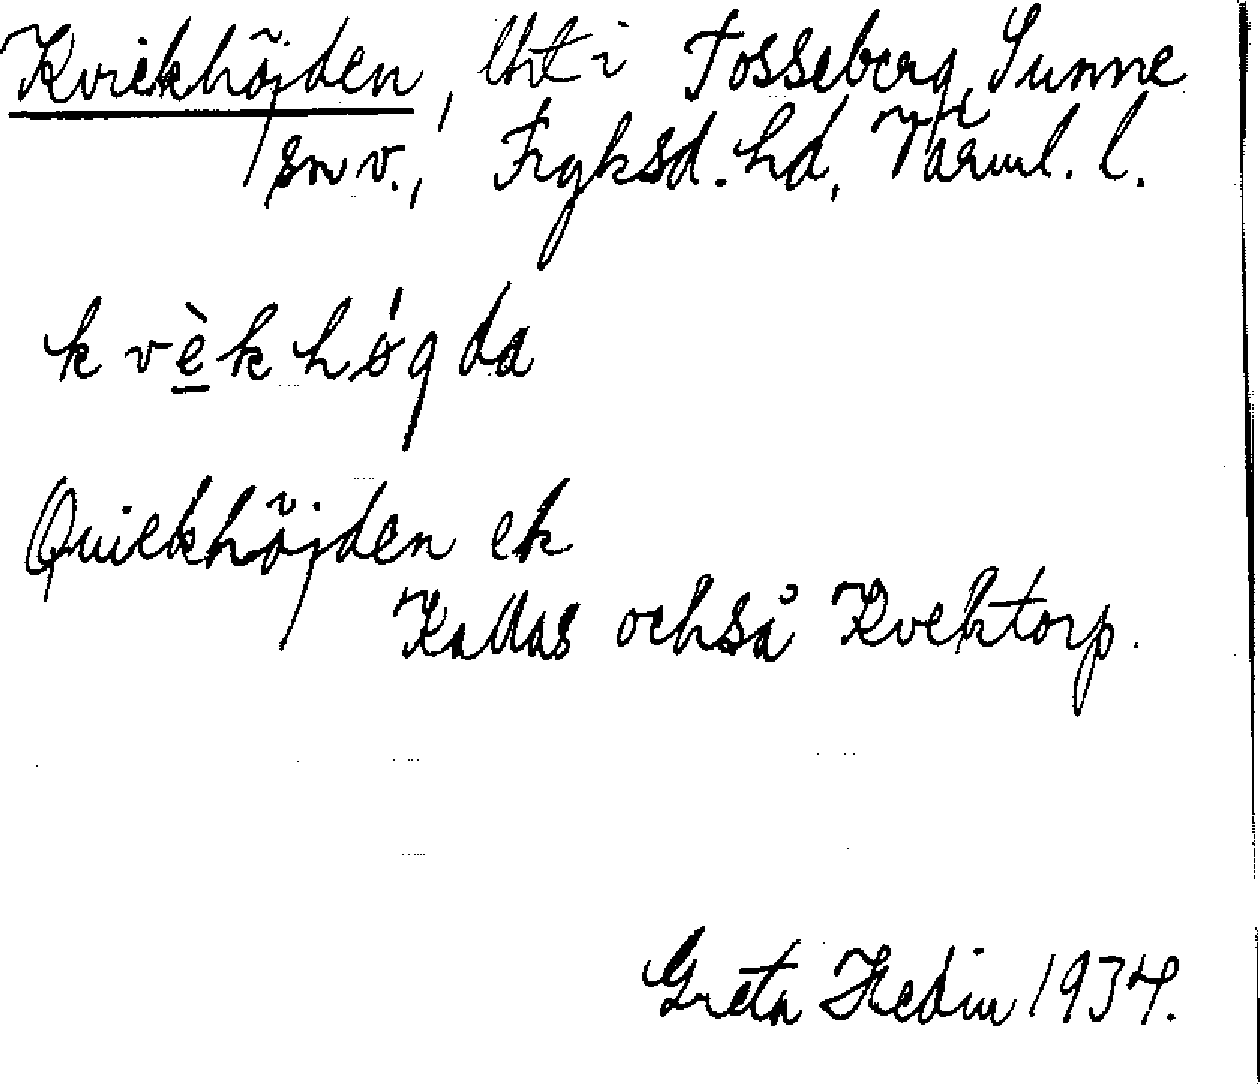 Kvickhöjden, lht i Tosseberg, Sunne
sn v., Fryksd. hd, Värml. l.
kvèkhǿgda
Quickhöjden ek
Kallas också Kvektorp.
Greta Hedin 1934.